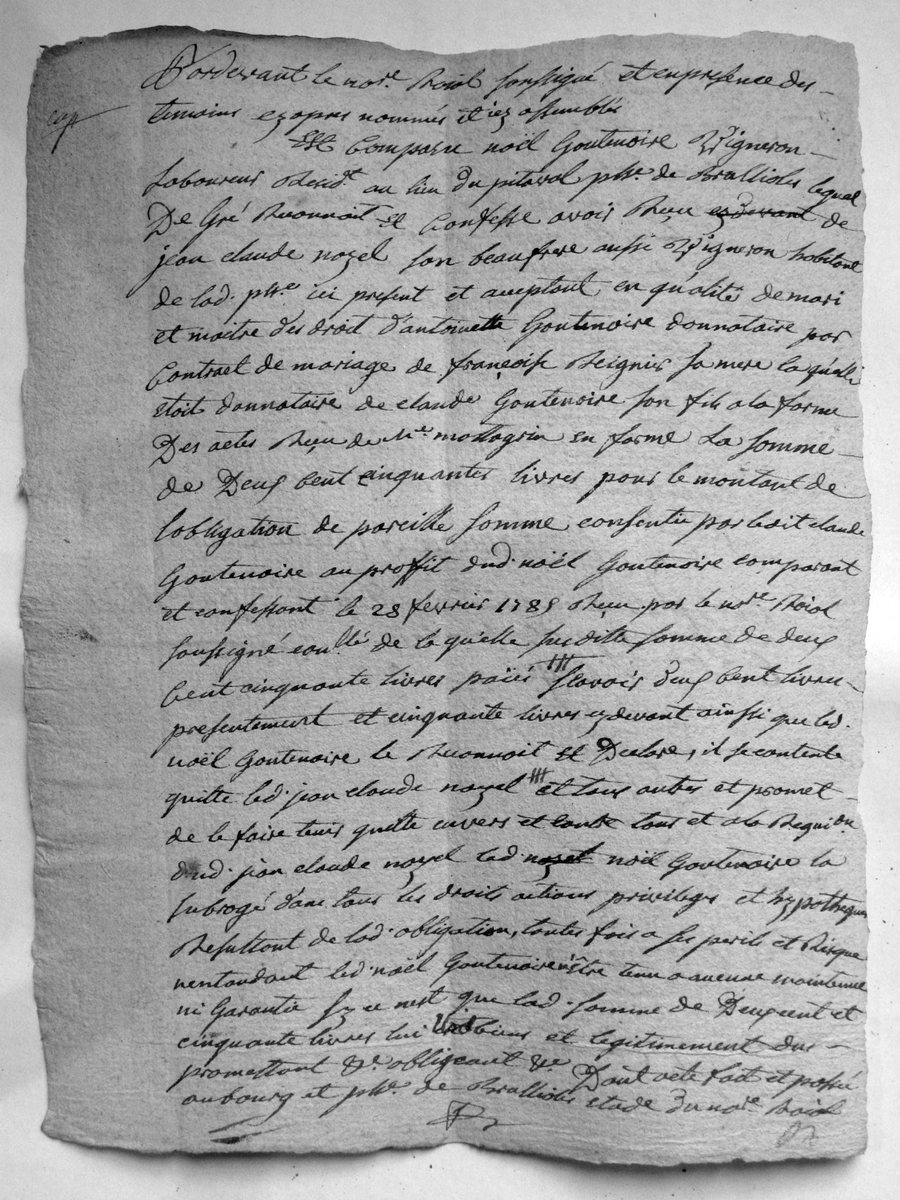 Pardevant le no.re Roiol soussigné et en presence des
temoins cy apres nommés et icy assemblés
Est Comparu noël Goutenoire Vigneron
Laboureur Resid.t au lieu du pitaval p.sse de Brulliolé lequel
De Gré Reconnoit et Confesse avoir Reçu cy devant de
jean claude nozel son beaufrere aussi Vigneron habitant
de lad. p.sse ici present et aceptant en qualité de mari
et maitre des droit d'antoinette Goutenoire donnataire par
Contract de mariage de françoise Reignier sa mere la quelle
etoit donnataire de claude Goutenoire son fils a la forme
Des actes Reçu de M.e en forme La somme
de Deux Cent cinquantes livres pour le montant de
lobligation de pareille somme consentie par ledit claude
Goutenoire au proffit dud. noël Goutenoire comparant
et confessant le 28 fevrier 1785 Reçu par le no.re Roiol
soussigné de la quelle susditte somme de deux
Cent cinquante livres païée Scavoir deux Cent livres
presentement et cinquante livres cy devant ainsi que led.
noël Goutenoire le Reconnoit et Declare, il se contente
quitte led. jean claude nozel et tous autres et promet
de le faire tenir quitte envers et contre tous et a la Requi.on
dud. jean claude nozel led. nozel noël Goutenoire la
subrogé dans tous les droits actions privileges et hypotheques
Resultant de lad. obligation, toutes fois a ses perils et Risque
nentandant led. noël Goutenoire être tenu a aucune maintenue
ni Garantie sy ce nest que lad. somme de Deux cent et
cinquante livres lui est bien et legitimement due
promettant &c obligeant &c Dont acte fait et passé
au bourg et p.sse de Brulliolé etude du no.re Roiol